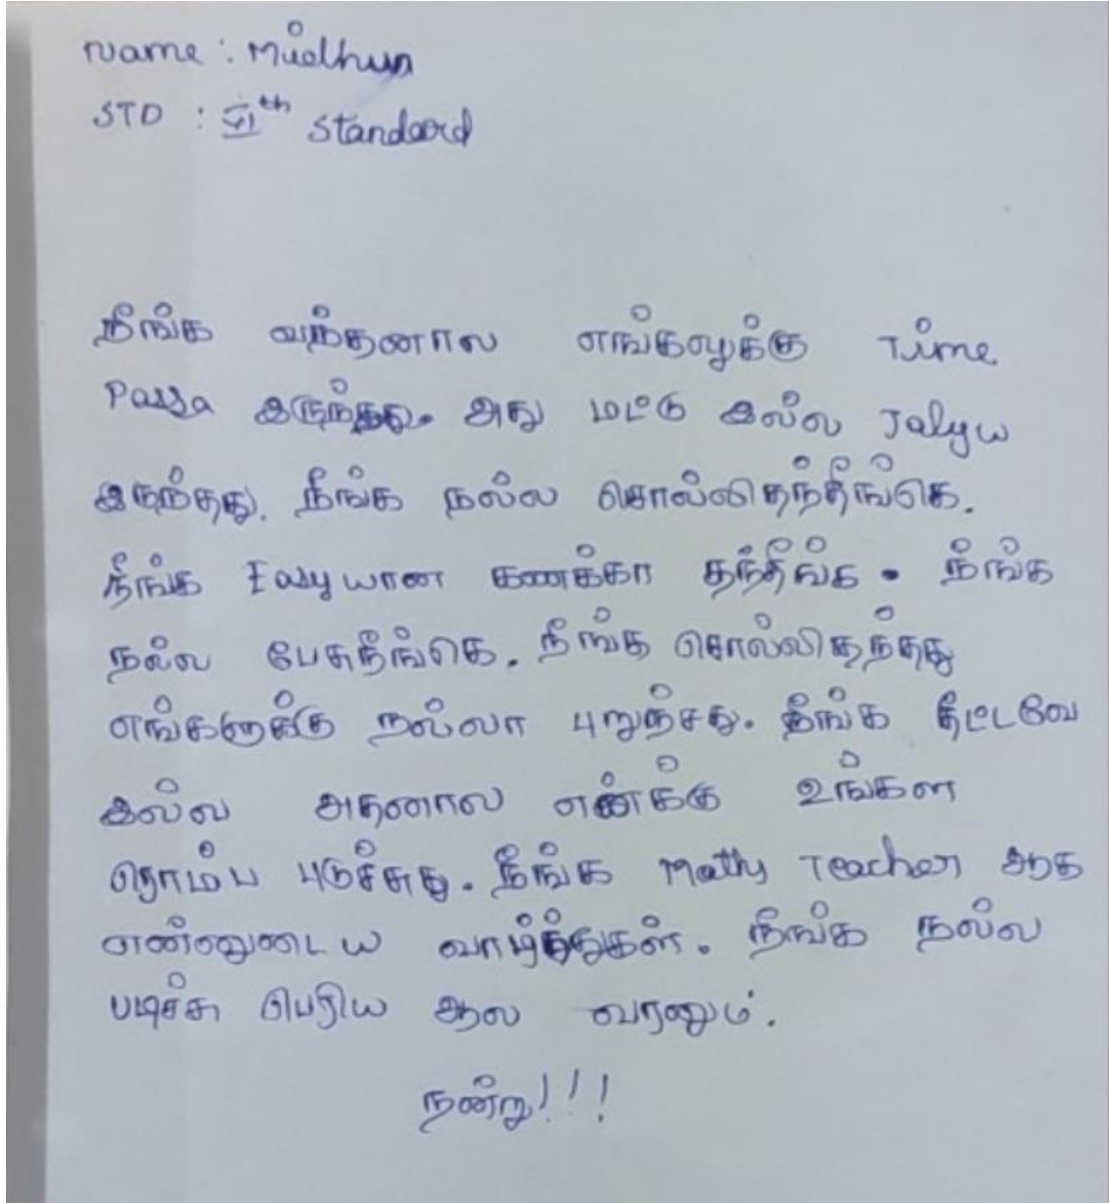 Name : Midhun
STD : VIth Standard
நீங்க வந்தனால எங்கலுக்கு Time
Passa இருந்தது. அது மட்டு இல்ல Jalyய
இருந்தது. நீங்க நல்ல சொல்லிதந்தீங்கெ.
நீங்க Easyயான கணக்கா தந்தீங்க. நீங்க
நல்ல பேசுநீங்கெ. நீங்க சொல்லிதந்தது
எங்களுக்கு நல்லா புறுஞ்சது. நீங்க தீட்டவே
இல்ல அதனால எனக்கு உங்கள
ரொம்ப புடுச்சுது. நீங்க Maths Teacher ஆக
என்னுடைய வாழ்த்துகள். நீங்க நல்ல
படிச்சு பெரிய ஆல வரனும்.
நன்று!!!